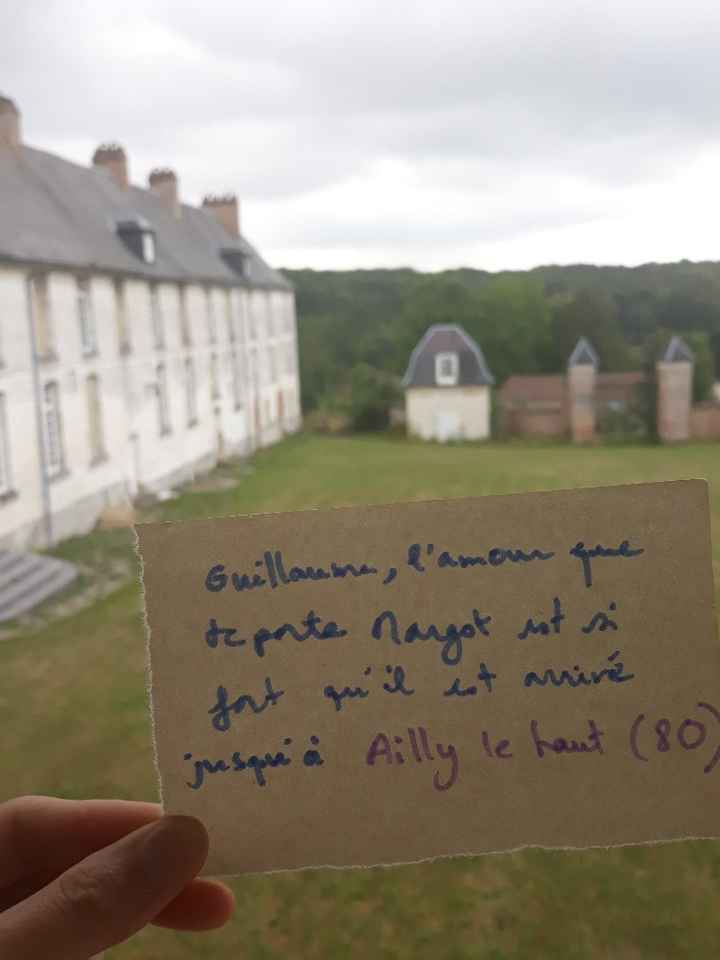 Guillaume, l'amour que
te porte Margot est si
fort qu'il est arrivé
jusqu'à Ailly le haut (80)